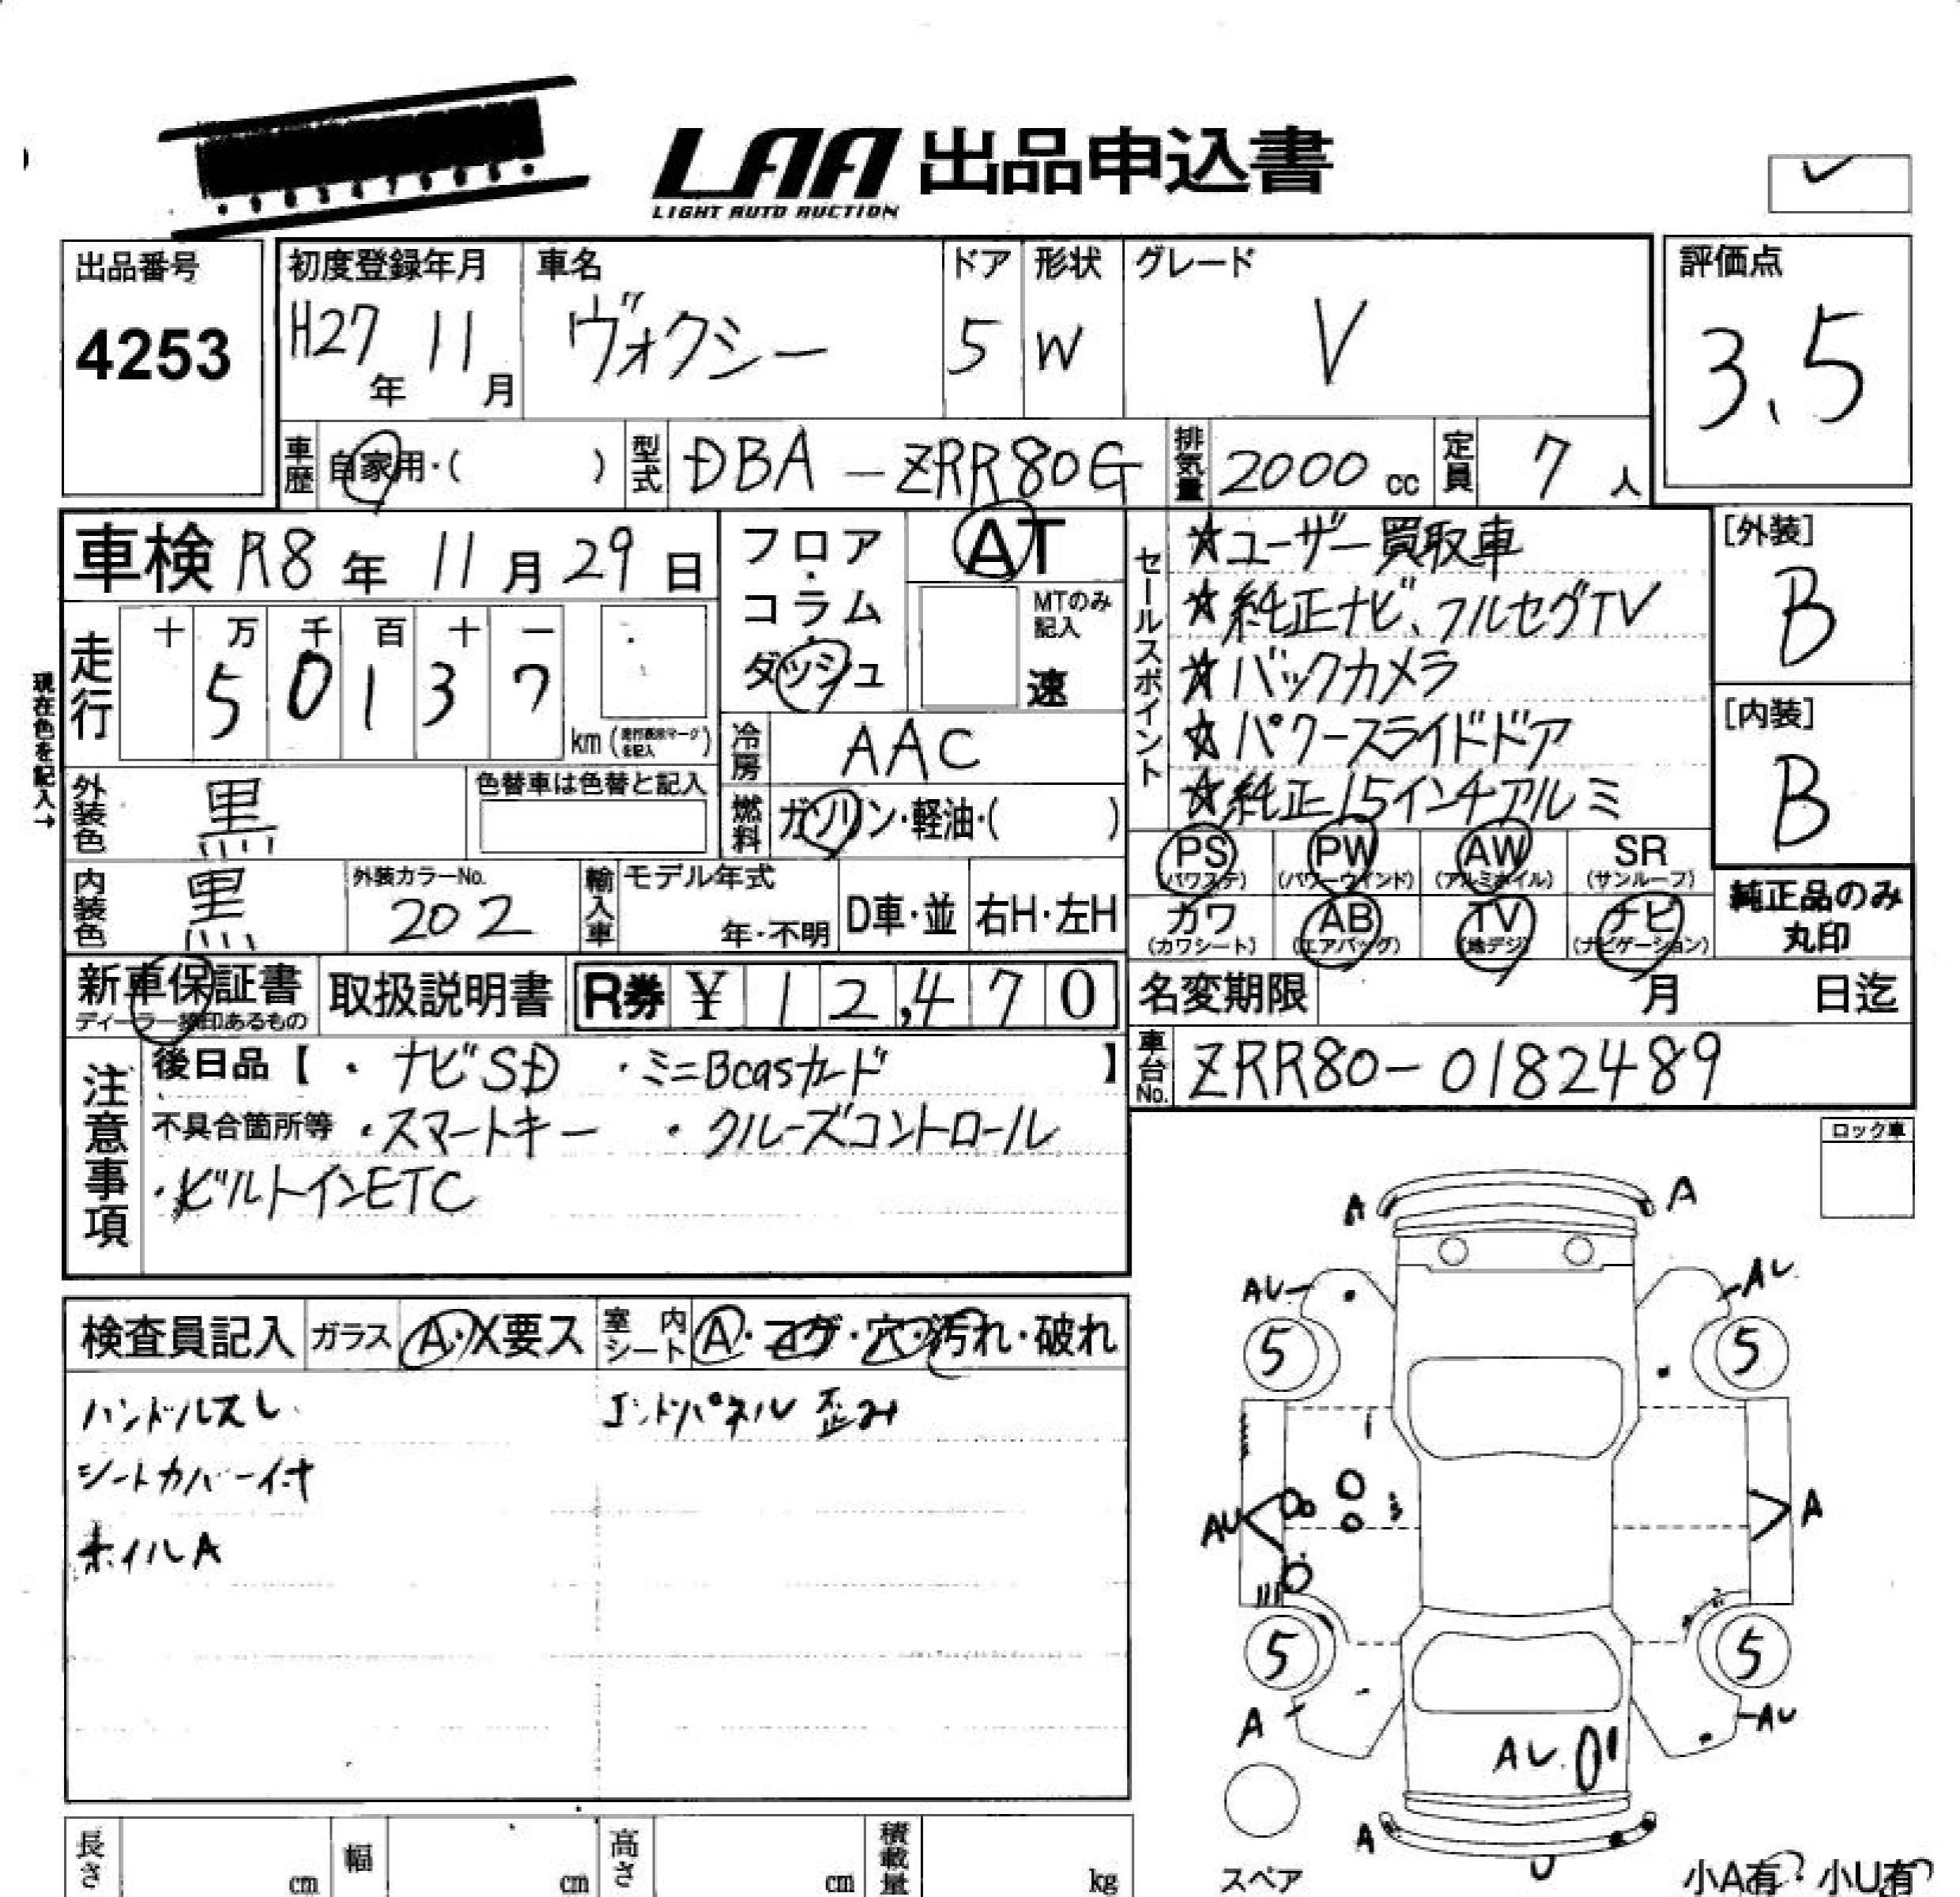 LAA 出品申込書
LIGHT AUTO AUCTION
出品番号
4253
初度登録年月
H27年 11月
車名
ヴォクシー
ドア
5
形状
W
グレード
V
評価点
3.5
車歴 自家用・( )
型式 DBA-ZRR80G
排気量 2000 cc
定員 7 人
車検 R8年 11月29日
フロア・コラム ダッシュ
AT
MTのみ記入
速
セールスポイント
☆ユーザー買取車
☆純正ナビ、フルセグTV
☆バックカメラ
☆パワースライドドア
☆純正15インチアルミ
[外装]
B
[内装]
B
現在色を記入→
走行 十 万 千 百 十 一
5 0 1 3 7
km
冷房 AAC
燃料 ガソリン・軽油・( )
外装色 黒
色替車は色替と記入
内装色 黒
外装カラーNo.
202
輸入車 モデル年式
年・不明
D車・並
右H・左H
PS (パワステ)
PW (パワーウインド)
AW (アルミホイル)
SR (サンルーフ)
カワ (カワシート)
AB (エアバッグ)
TV (地デジ)
ナビ (ナビゲーション)
純正品のみ丸印
新車保証書
ディーラー捺印あるもの
取扱説明書
R券 ¥ 12,470
名変期限 月 日迄
車台No. ZRR80-0182489
注意事項
後日品【 ・ナビSD ・ミニBcasカード 】
不具合箇所等 ・スマートキー ・クルーズコントロール
・ビルトインETC
ロック車
検査員記入
ガラス A・X要ス
室内シート A・コゲ・穴・汚れ・破れ
ハンドルスレ
エンドパネル 歪み
シートカバー付
ホイルA
A A
AU AU
5 5
AU A
5 5
A AU
AU
A U
スペア
小A有・小U有
長さ cm
幅 cm
高さ cm
積載量 kg